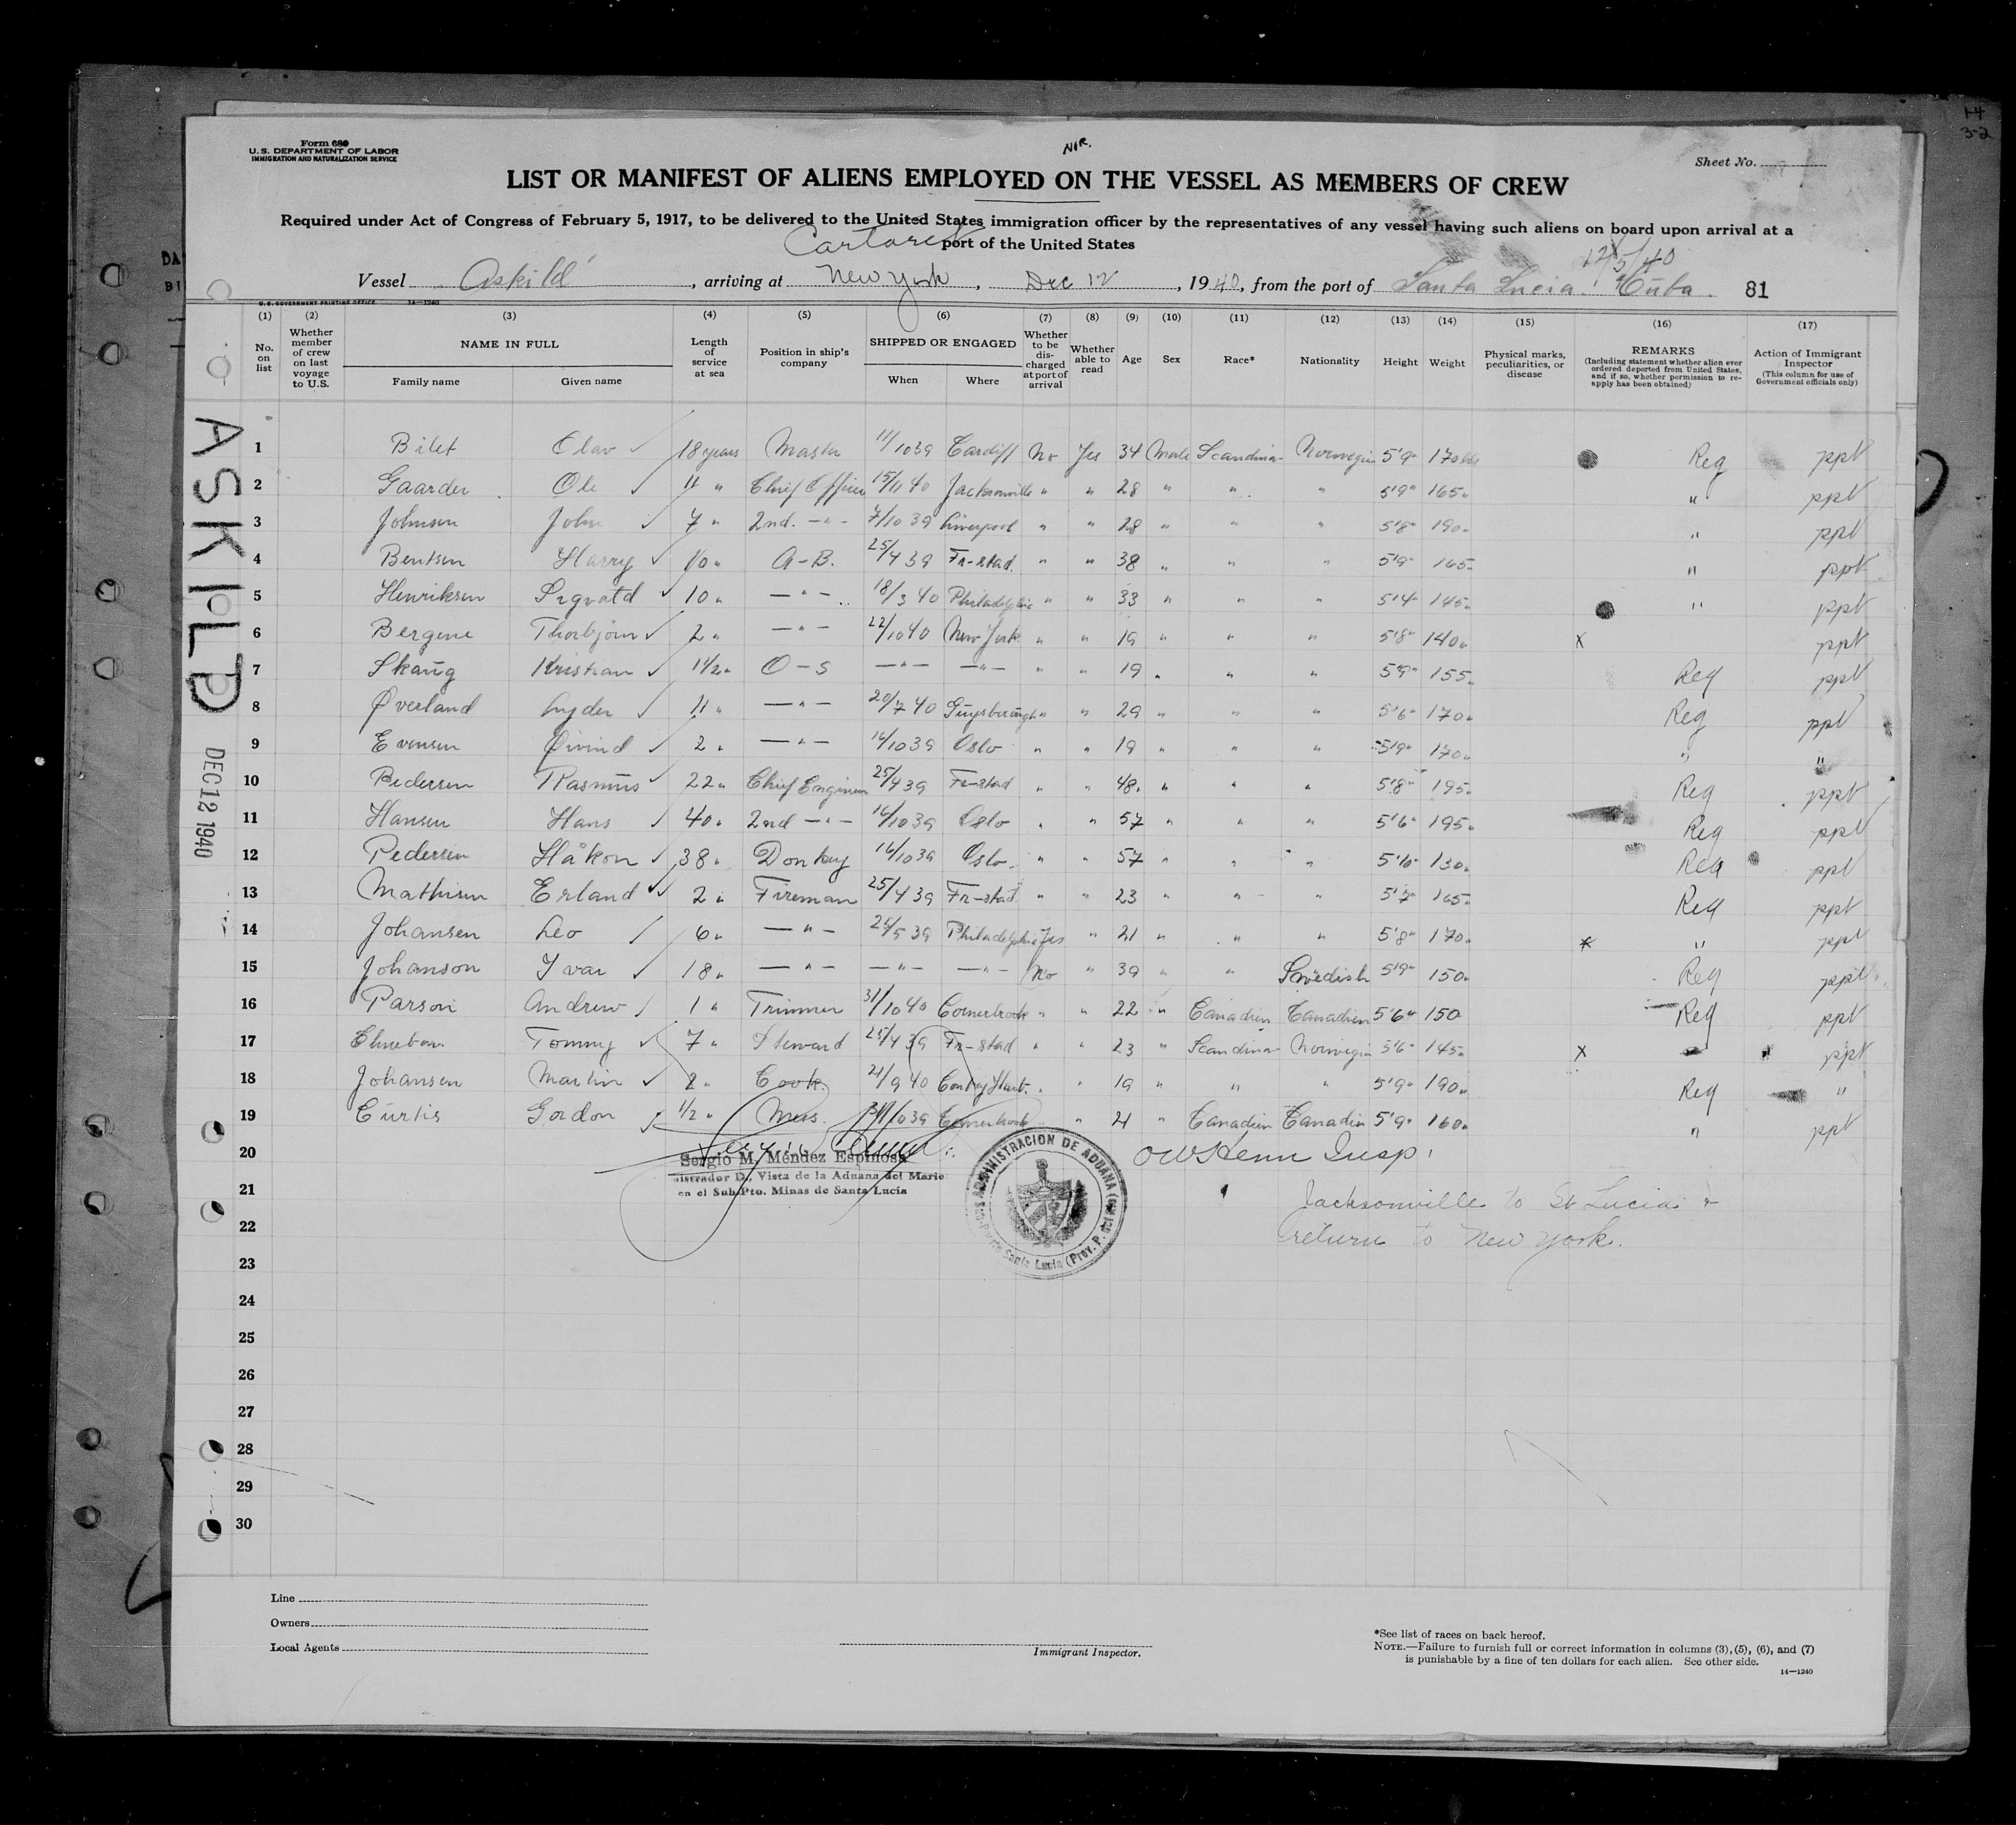 14
3-2
Form 680
U.S. DEPARTMENT OF LABOR
IMMIGRATION AND NATURALIZATION SERVICE
Sheet No.
LIST OR MANIFEST OF ALIENS EMPLOYED ON THE VESSEL AS MEMBERS OF CREW
Required under Act of Congress of February 5, 1917, to be delivered to the United States immigration officer by the representatives of any vessel having such aliens on board upon arrival at a
port of the United States
Carteret
12/5/40
Vessel Askild, arriving at New York, Dec 12, 1940, from the port of Santa Lucia. Cuba. 81
U.S. GOVERNMENT PRINTING OFFICE 14—1240
(1) (2) (3) (4) (5) (6) (7) (8) (9) (10) (11) (12) (13) (14) (15) (16) (17)
No. on list
Whether member of crew on last voyage to U.S.
NAME IN FULL
Family name
Given name
Length of service at sea
Position in ship's company
SHIPPED OR ENGAGED
When
Where
Whether to be discharged at port of arrival
Whether able to read
Age
Sex
Race*
Nationality
Height
Weight
Physical marks, peculiarities, or disease
REMARKS
(Including statement whether alien ever ordered deported from United States, and if so, whether permission to re-apply has been obtained)
Action of Immigrant Inspector
(This column for use of Government officials only)
ASKILD
DEC 12 1940
1 Bilet Olav 18 years Master 11/10 39 Cardiff No Yes 34 Male Scandina- Norwegia 5'9" 170 lbs Reg ppt
2 Gaarder Ole 11 " Chief Officer 15/11 40 Jacksonville " " 28 " " " 5'9" 165 " " ppt
3 Johnsen John 7 " 2nd. -"- 7/10 39 Liverpool " " 28 " " " 5'8" 190 " ppt
4 Bentsen Harry 10 " A-B. 25/4 39 Fr-stad. " " 38 " " " 5'9" 165 " ppt
5 Henriksen Sigvald 10 " -"- 18/3 40 Philadelphia " " 33 " " " 5'4" 145 " " ppt
6 Bergene Thorbjörn 2 " -"- 22/10 40 New York " " 19 " " " 5'8" 140 " x ppt
7 Skaug Kristian 1 1/2 " O-S -"- -"- " " 19 " " " 5'9" 155 " Reg ppt
8 Øverland Lyder 11 " -"- 20/7 40 Guysborough " " 29 " " " 5'6" 170 " Reg ppt
9 Evensen Øivind 2 " -"- 16/10 39 Oslo " " 19 " " " 5'9" 170 " " "
10 Pedersen Rasmus 22 " Chief Engineer 25/4 39 Fr-stad " " 48 " " " 5'8" 195 " Reg ppt
11 Hansen Hans 40 " 2nd -"- 16/10 39 Oslo " " 57 " " " 5'6" 195 " Reg ppt
12 Pedersen Håkon 38 " Donkey 16/10 39 Oslo " " 57 " " " 130 " Reg ppt
13 Mathisen Erland 2 " Fireman 25/4 39 Fr-stad. " " 23 " " " 5'7" 165 " Reg ppt
14 Johansen Leo 6 " -"- 39 Philadelphia Yes " 21 " " " 5'8" 170 " x " ppt
15 Johanson Yvar 18 " -"- -"- -"- No " 39 " " Swedish 5'9" 150 " Reg ppt
16 Parson Andrew 1 " Trimmer 31/10 40 Cornerbrook " " 22 " Canadien Canadien 5'6" 150 Reg ppt
17 Tommy 7 " Steward 25/4 39 Fr-stad " " 23 " Scandina- Norwegia 5'6" 145 " x ppt
18 Johansen Martin 2 " Cook 21/9 40 " " 19 " " " 5'9" 190 " Reg "
19 Curtis Gordon 1/2 " Mess. Cornerbrook " 21 " Canadien Canadien 5'9" 160 " " ppt
20
21
22
23
24
25
26
27
28
29
30
Sergio M. Méndez Espinosa
istrador D. Vista de la Aduana del Marie
en el Sub-Pto. Minas de Santa Lucia
ADMINISTRACION DE ADUANA
Santa Lucia (Prov. P. del Rio)
Insp.
Jacksonville to St Lucia &
return to New York.
Line
Owners
Local Agents
Immigrant Inspector.
*See list of races on back hereof.
NOTE.—Failure to furnish full or correct information in columns (3), (5), (6), and (7)
is punishable by a fine of ten dollars for each alien. See other side.
14—1240